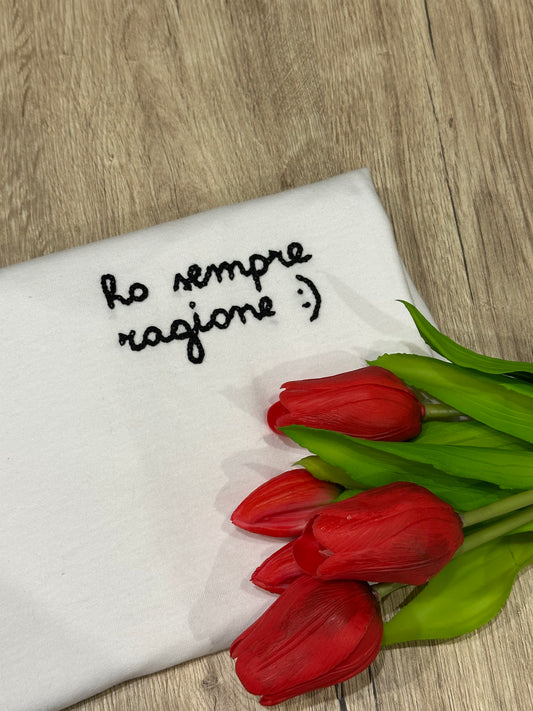 ho sempre
ragione :)